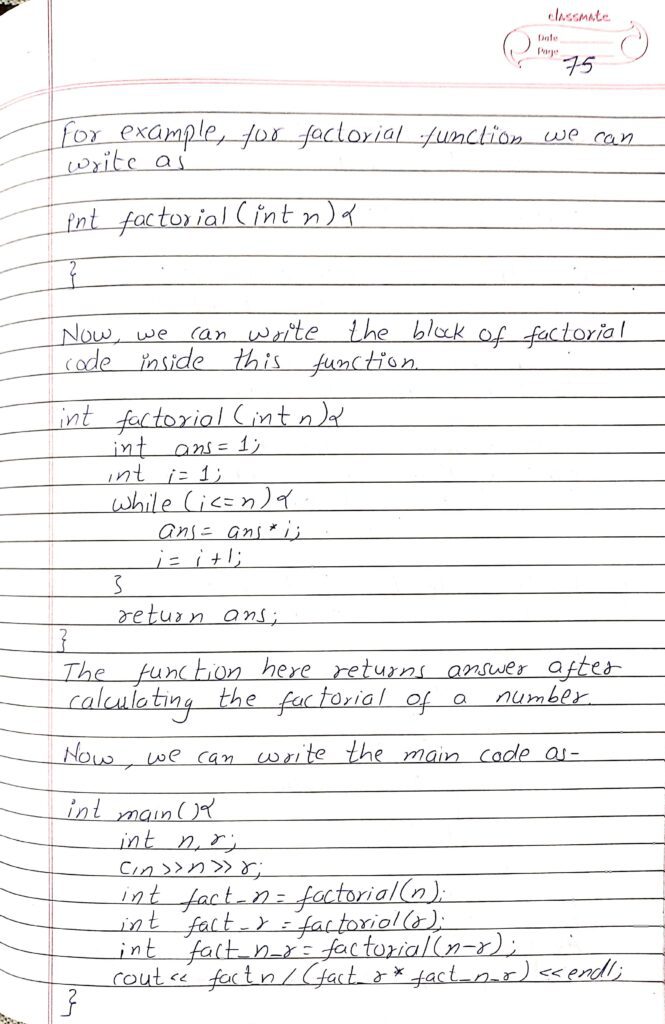 classmate
Date
Page
75
For example, for factorial function we can
write as
int factorial (int n) {
}
Now, we can write the block of factorial
code inside this function.
int factorial (int n) {
int ans = 1;
int i = 1;
while (i <= n) {
ans = ans * i;
i = i + 1;
}
return ans;
}
The function here returns answer after
calculating the factorial of a number.
Now, we can write the main code as-
int main() {
int n, r;
cin >> n >> r;
int fact_n = factorial(n);
int fact_r = factorial(r);
int fact_n_r = factorial(n-r);
cout << fact n / (fact_r * fact_n_r) << endl;
}